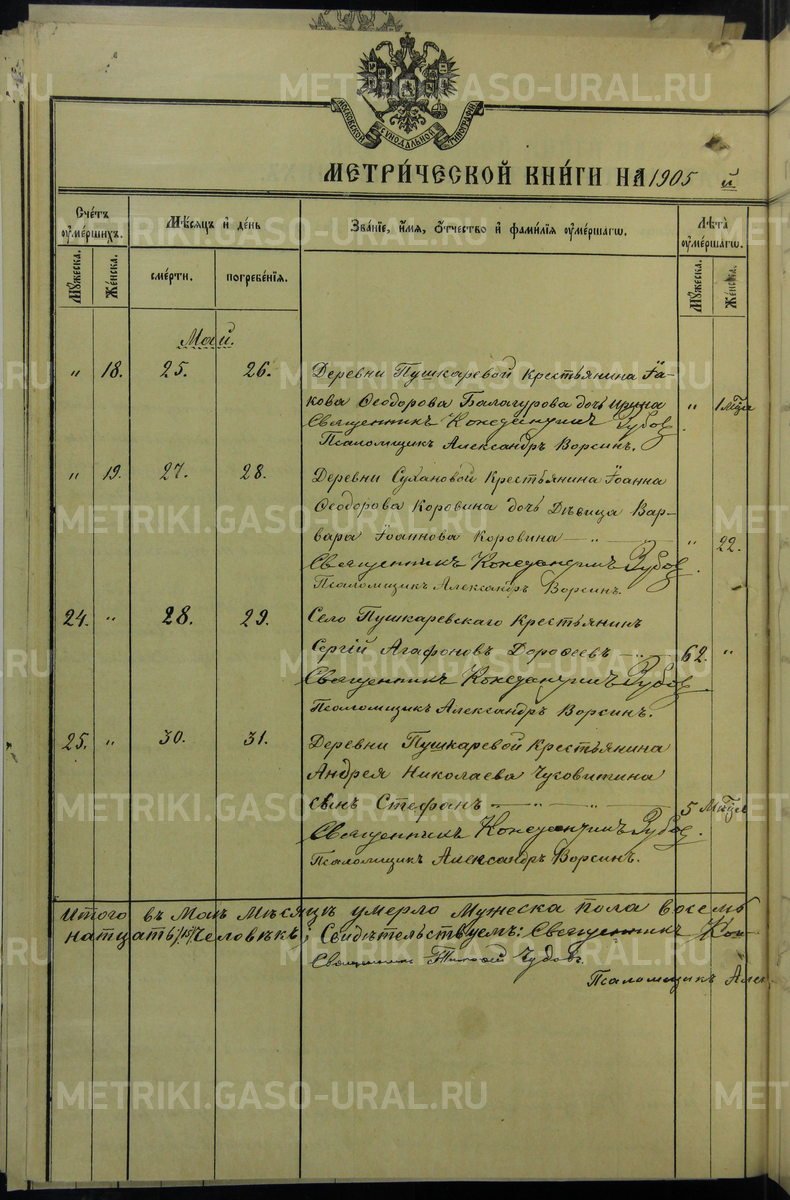 МОСКОВСКОЙ СѴНОДАЛЬНОЙ ТИПОГРАФІИ
МЕТРИ́ЧЕСКОЙ КНИ́ГИ НА 1905 й
Сче́тъ ᲂу҆ме́ршихъ.
Мꙋ́жеска.
Же́нска.
Мѣ́сяцъ и҆ де́нь
сме́рти.
погребе́нїѧ.
Зва́нїе, и҆́мѧ, ѻ҆́тчество и҆ фами́лїѧ ᲂу҆ме́ршагѡ.
Лѣ́та ᲂу҆ме́ршагѡ.
Мꙋ́жеска.
Же́нска.
Май.
" 18. 25. 26. Деревни Пушкаревой крестьянина Іа-
кова Ѳеодорова Балагурова дочь Ирина " 1 м̃ца
Священникъ Зубов
Псаломщикъ Александръ Ворсинъ.
" 19. 27. 28. Деревни Сулановой крестьянина Іоанна
Ѳеодорова Коровина дочь дѣвица Вар-
вара Іоаннова Коровина — " — " — " 22.
Священникъ Зубов
Псаломщикъ Александръ Ворсинъ.
24. " 28. 29. Село Пушкаревскаго крестьянинъ
Сергій Агафоновъ Дороѳеевъ — " — 62. "
Священникъ Зубов
Псаломщикъ Александръ Ворсинъ.
25. " 30. 31. Деревни Пушкаревой крестьянина
Андрея Николаева Чусовитина
сынъ Стефанъ — " — " — 5
Священникъ Зубов.
Псаломщикъ Александръ Ворсинъ.
Итого въ Маѣ мѣсяцѣ умерло мужеска пола восемь
натцать человѣкъ; Свидѣтельствуемъ: Священникъ Кон
Священникъ
Псаломщикъ Алек
METRIKI.GASO-URAL.RU